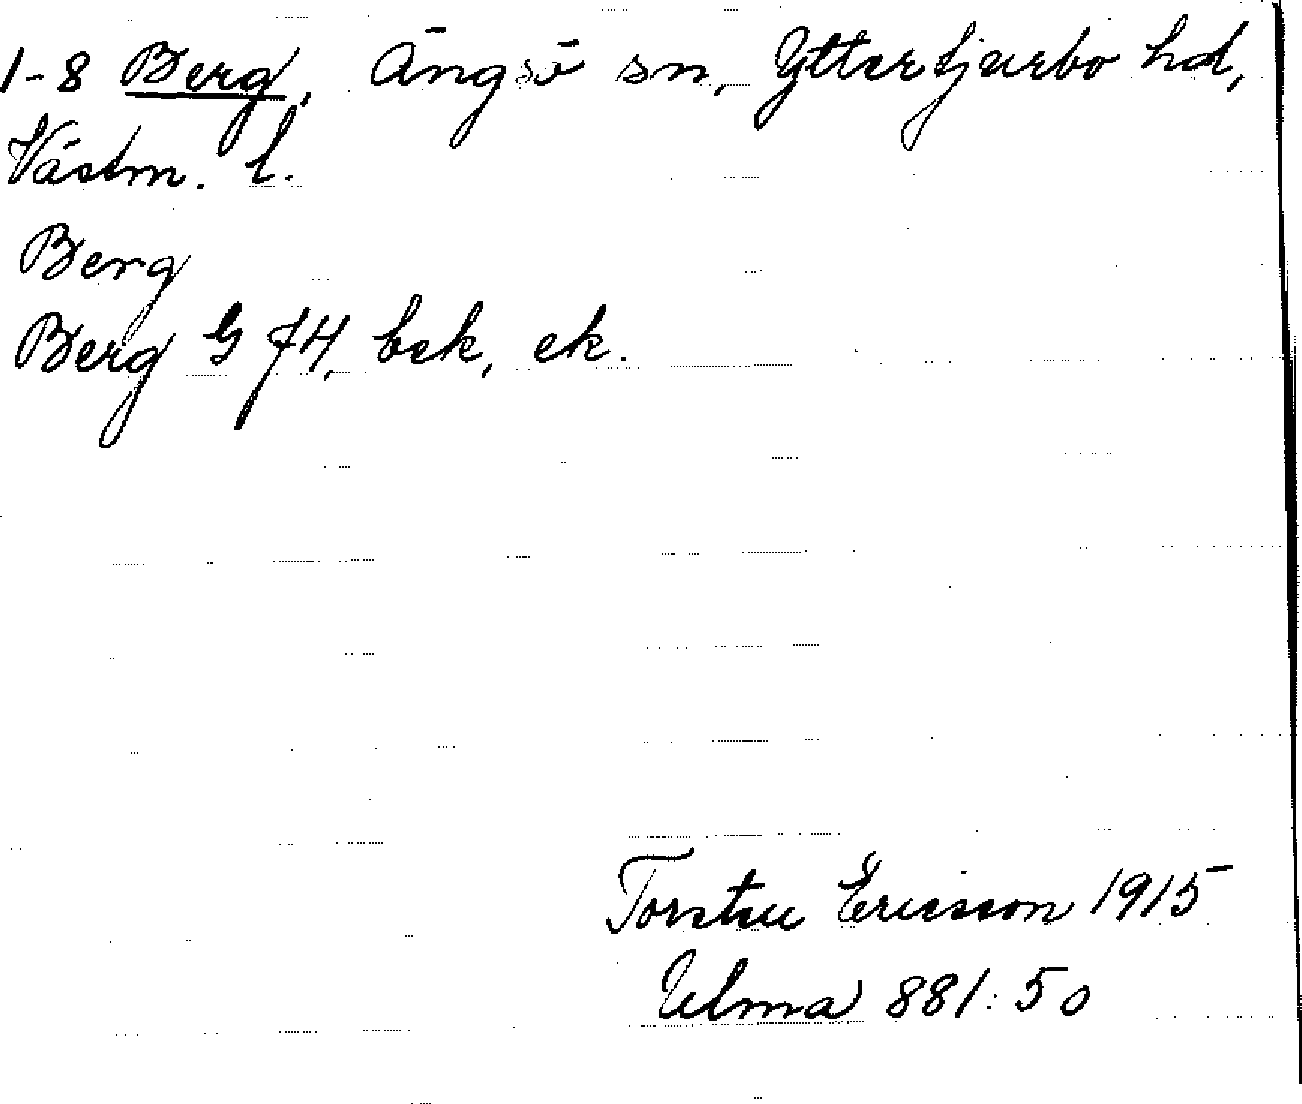 1-8 Berg, Ängsö sn, Yttertjurbo hd,
Västm. l.
Berg
Berg G J4, bek, ek.
Torsten Ericsson 1915
Ulma 881:50